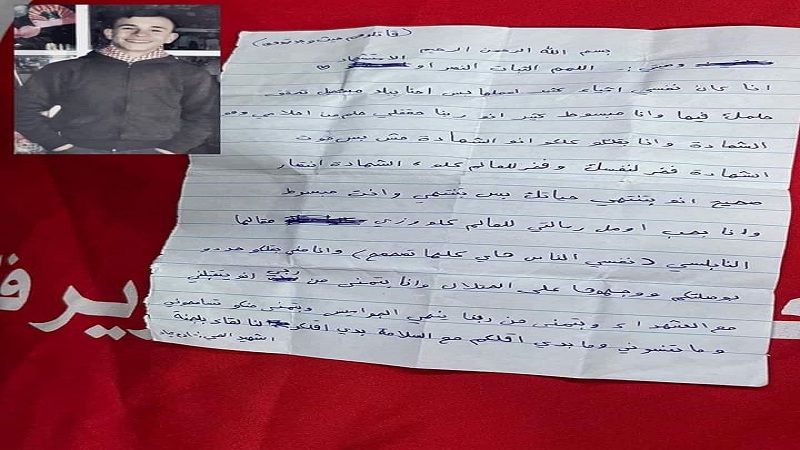 بسم الله الرحمن الرحيم
وصيتي: اللهم الثبات النصر او الاستشهاد
انا كان نفسي اشياء كثير اعملها بس احنا ببلد مستحيل تحقق
حلمك فيها وانا مبسوط كثير انو ربنا حققلي حلم من احلامي وهو
الشهادة وانا بقلكو كلكو انو الشهادة مش بس موت
الشهادة فخر لنفسك وفخر للعالم كله، الشهادة انتصار
صحيح انو بتنتهي حياتك بس بتنتهي وانت مبسوط
وانا بحب اوصل رسالتي للعالم كلو وزي مقالها
النابلسي (نفسي الناس هاي كلها تصحصح) وانا مني بقلكو حددو
بوصلتكم ووجهوها على المحتلال وانا بتمنى من ربي انو يتقبلني
مع الشهداء وبتمنى من ربنا ينهي الجواسيس وبتمنى منكو تسامحوني
وما تنسوني وما بدي اقلكم مع السلامة بدي اقلكو لنا لقاء بالجنة
الشهيد الحي: